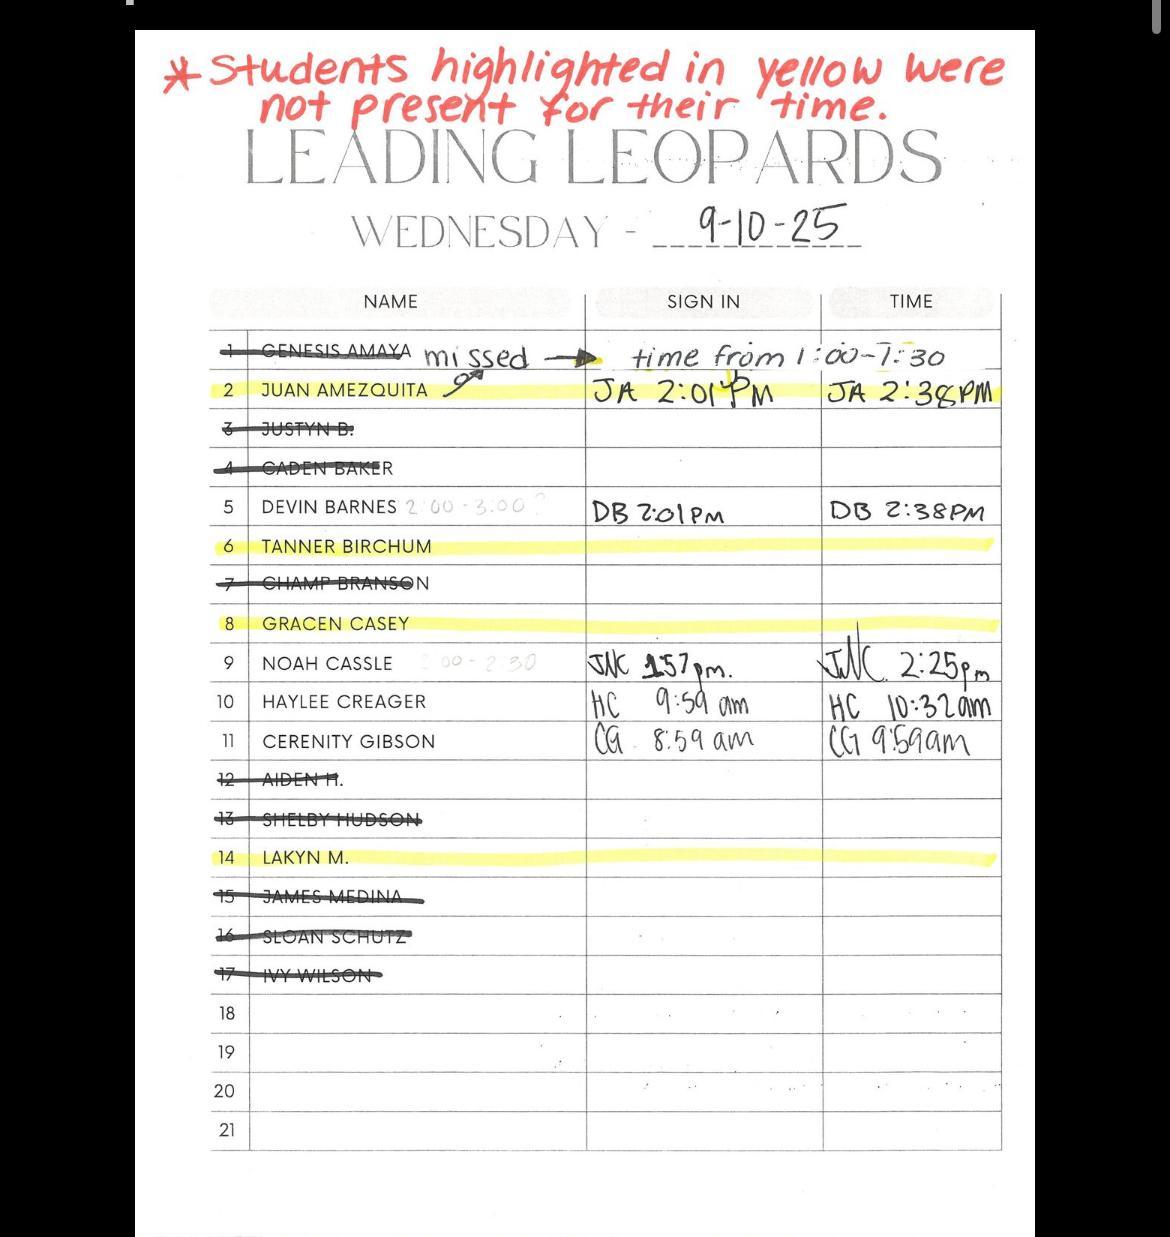 * Students highlighted in yellow were
not present for their time.
LEADING LEOPARDS
WEDNESDAY - 9-10-25
NAME SIGN IN TIME
1 GENESIS AMAYA missed → time from 1:00-1:30
2 JUAN AMEZQUITA JA 2:01 PM JA 2:38PM
3 JUSTYN B.
4 CADEN BAKER
5 DEVIN BARNES 2:00-3:00? DB 2:01PM DB 2:38PM
6 TANNER BIRCHUM
7 CHAMP BRANSON
8 GRACEN CASEY
9 NOAH CASSLE 2:00-2:30 JNC 157pm. JNC 2:25pm
10 HAYLEE CREAGER HC 9:59 am HC 10:32am
11 CERENITY GIBSON CG 8:59 am CG 9:59am
12 AIDEN H.
13 SHELBY HUDSON
14 LAKYN M.
15 JAMES MEDINA
16 SLOAN SCHUTZ
17 IVY WILSON
18
19
20
21